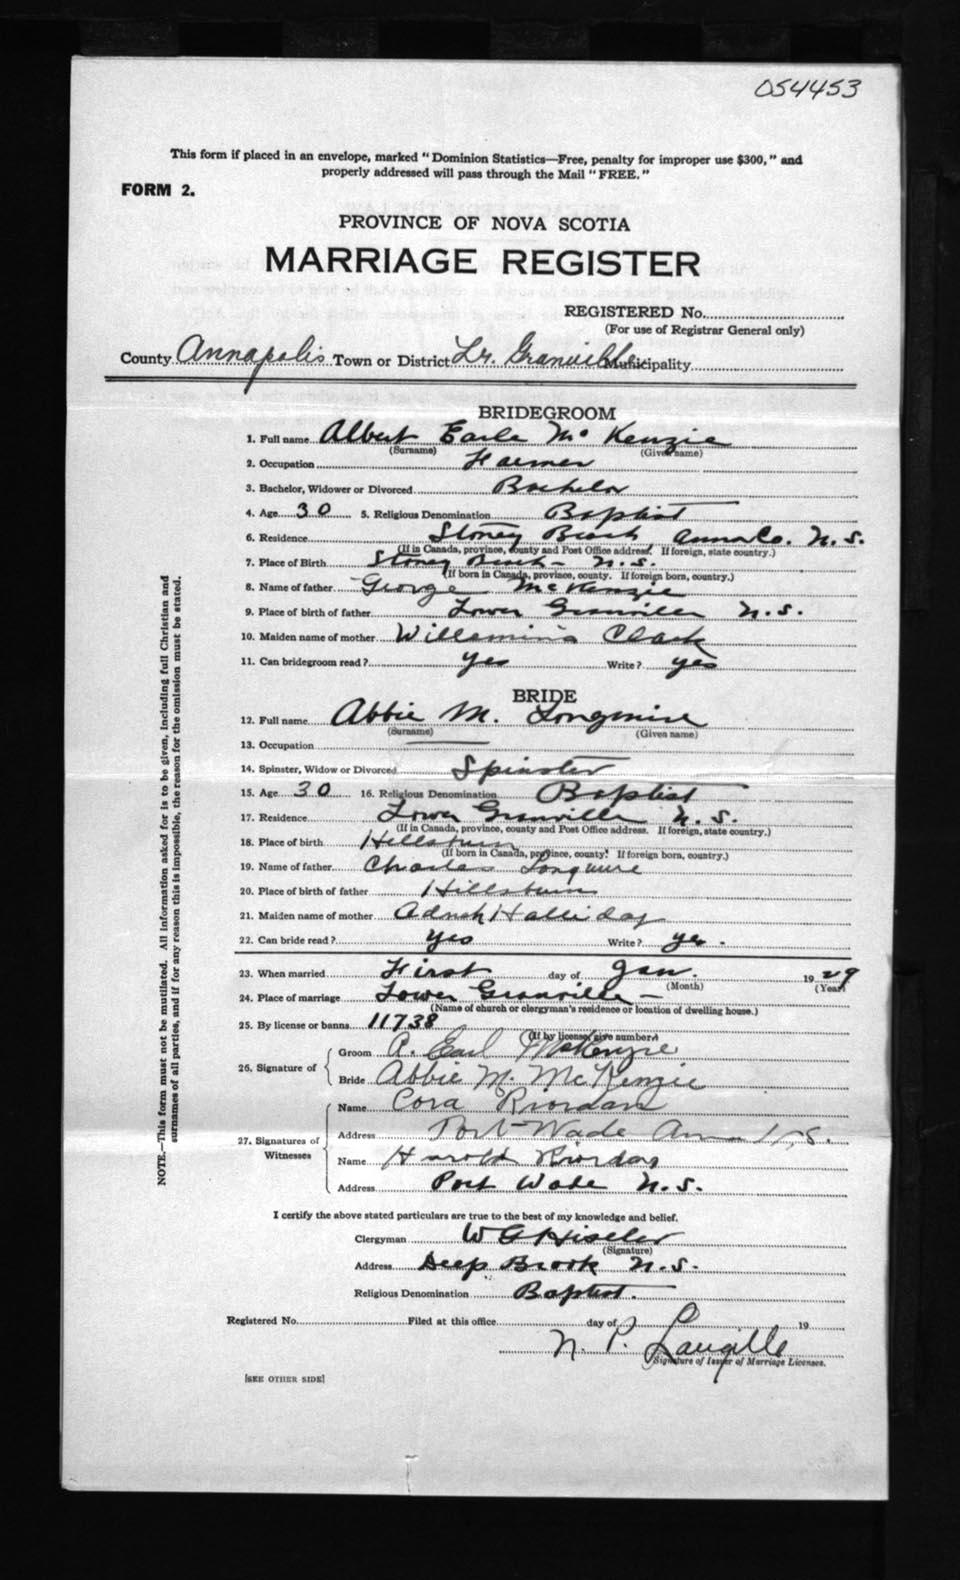 054453
This form if placed in an envelope, marked "Dominion Statistics—Free, penalty for improper use $300," and
properly addressed will pass through the Mail "FREE."
FORM 2.
PROVINCE OF NOVA SCOTIA
MARRIAGE REGISTER
REGISTERED No.
(For use of Registrar General only)
County Annapolis Town or District Lr. Granville Municipality
BRIDEGROOM
1. Full name Albert Earle McKenzie
(Surname) (Given name)
2. Occupation Farmer
3. Bachelor, Widower or Divorced Bachelor
4. Age 30 5. Religious Denomination Baptist
6. Residence Stoney Beach Anna Co. N.S.
(If in Canada, province, county and Post Office address. If foreign, state country.)
7. Place of Birth Stoney Beach - N.S.
(If born in Canada, province, county. If foreign born, country.)
8. Name of father George McKenzie
9. Place of birth of father Lower Granville N.S.
10. Maiden name of mother Willamina Clark
11. Can bridegroom read? yes Write? yes
BRIDE
12. Full name Abbie M. Longmire
(Surname) (Given name)
13. Occupation
14. Spinster, Widow or Divorced Spinster
15. Age 30 16. Religious Denomination Baptist
17. Residence Lower Granville N.S.
(If in Canada, province, county and Post Office address. If foreign, state country.)
18. Place of birth Hillsburn
(If born in Canada, province, county. If foreign born, country.)
19. Name of father Charles Longmire
20. Place of birth of father Hillsburn
21. Maiden name of mother Halliday
22. Can bride read? yes Write? yes.
23. When married First day of Jan. 1929
(Month) (Year)
24. Place of marriage Lower Granville -
(Name of church or clergyman's residence or location of dwelling house.)
25. By license or banns 11738
(If by license, give number)
26. Signature of
Groom A. Earl McKenzie
Bride Abbie M. McKenzie
27. Signatures of Witnesses
Name Cora Riordan
Address Port Wade Anna N.S.
Name Harold Riordan
Address Port Wade N.S.
I certify the above stated particulars are true to the best of my knowledge and belief.
Clergyman W G Hiseler
(Signature)
Address Deep Brook N.S.
Religious Denomination Baptist.
Registered No. Filed at this office day of 19
N. P. Langille
Signature of Issuer of Marriage Licenses.
[SEE OTHER SIDE]
NOTE.—This form must not be mutilated. All information asked for is to be given, including full Christian and
surnames of all parties, and if for any reason this is impossible, the reason for the omission must be stated.